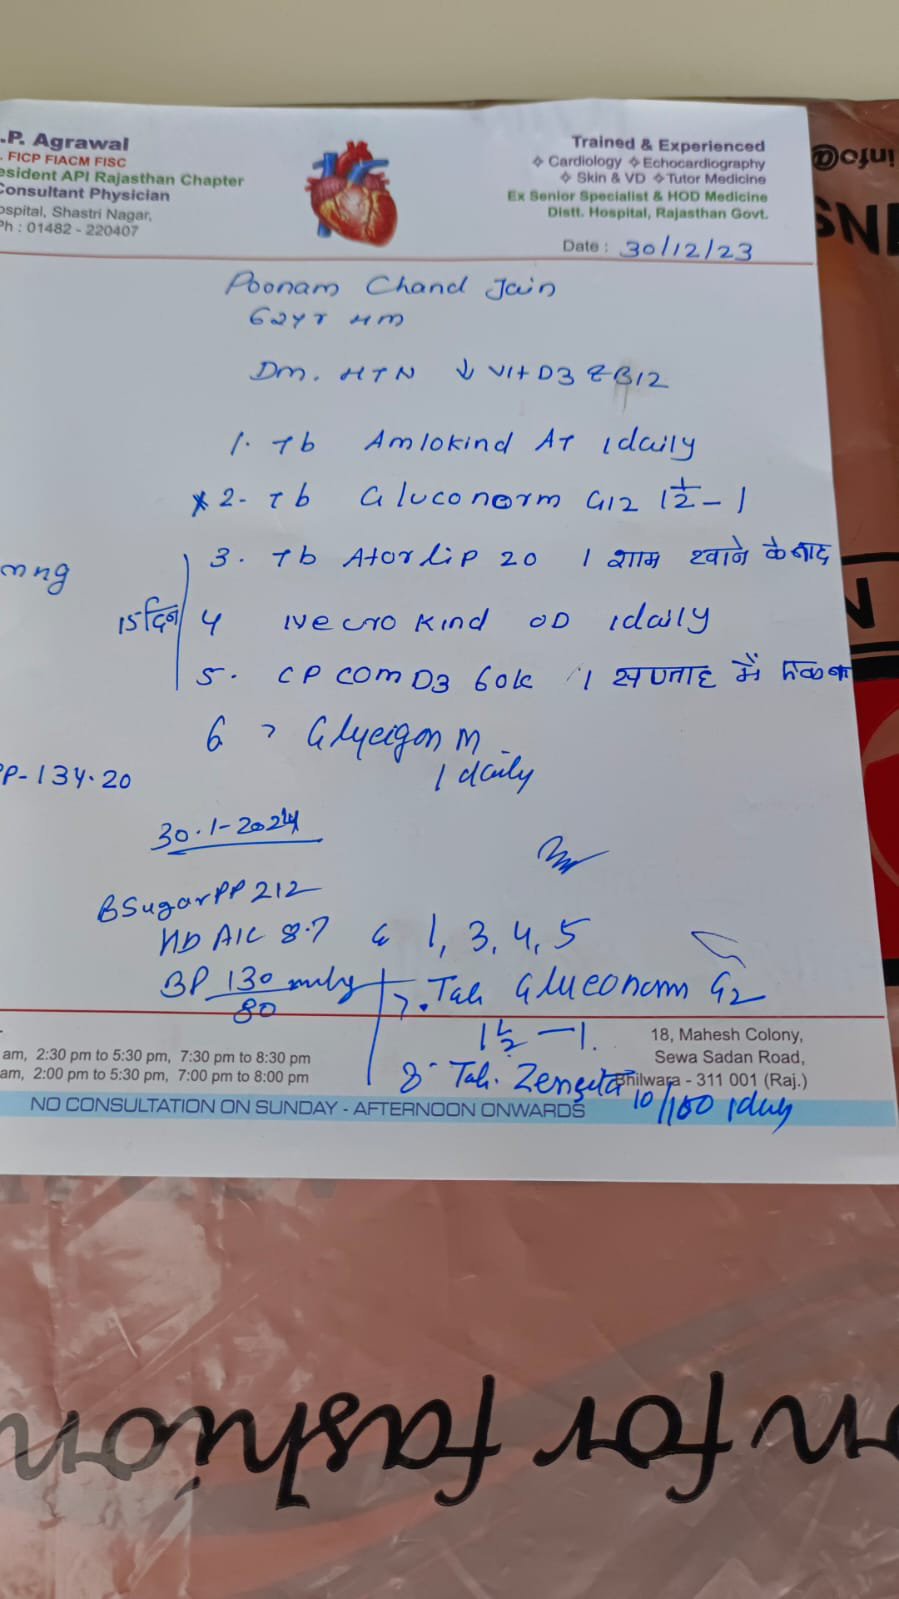 .P. Agrawal
. FICP FIACM FISC
esident API Rajasthan Chapter
Consultant Physician
ospital, Shastri Nagar,
Ph : 01482 - 220407
Trained & Experienced
❖ Cardiology ❖ Echocardiography
❖ Skin & VD ❖ Tutor Medicine
Ex Senior Specialist & HOD Medicine
Distt. Hospital, Rajasthan Govt.
Date : 30/12/23
info@
Poonam Chand Jain
62yr HM
Dm. HTN ↓ Vit D3 & B12
1. Tb Amlokind AT 1 daily
* 2- Tb Gluconorm G12 1½ - 1
3. Tb Atorlip 20 1 शाम खाने के बाद
mng
15 दिन
4 Neurokind OD 1 daily
5. CP COM D3 60k 1 सप्ताह में एक
6 > M
1 daily
PP-134.20
30.1-2024
BSugar PP 212
HbA1C 8.7
BP 130/80 mmhg
1, 3, 4, 5
7. Tab Gluconorm G2
1½ — 1.
8- Tab. 10/100 1 daily
am, 2:30 pm to 5:30 pm, 7:30 pm to 8:30 pm
am, 2:00 pm to 5:30 pm, 7:00 pm to 8:00 pm
18, Mahesh Colony,
Sewa Sadan Road,
Bhilwara - 311 001 (Raj.)
NO CONSULTATION ON SUNDAY - AFTERNOON ONWARDS
n for fashion